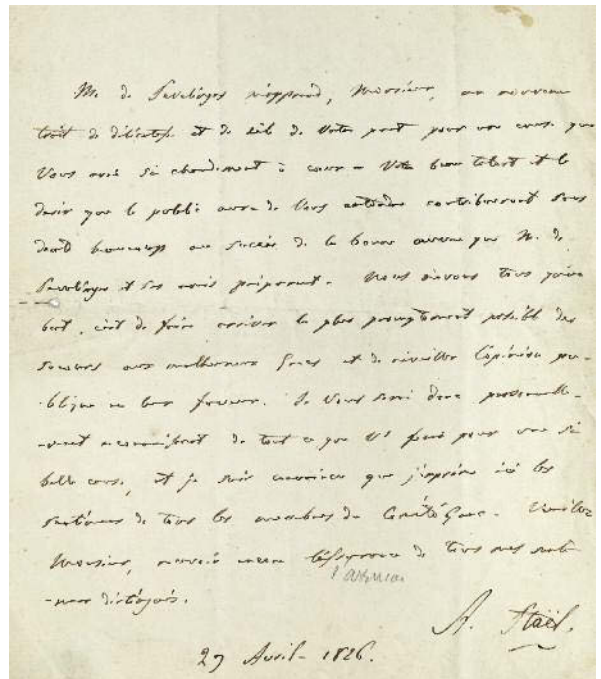 M. de m'apprend, Monsieur, un nouveau
trait de et de zèle de votre part pour une cause que
Vous avez si chaudement à coeur – Votre beau talent et le
desir que le public aura de Vous entendre contribueront sans
doute beaucoup au succès de la bonne oeuvre que M. de
et ses amis préparent. Nous n'avons tous qu'un
but, c'est de faire arriver le plus promptement possible des
secours aux malheureux Grecs et de réveiller l'opinion pu-
-blique en leur faveur. Je Vous serai donc personnelle-
-ment reconnaissant de tout ce que Vs ferez pour une si
belle cause, et je suis convaincu que j'exprime ici les
sentimens de tous les membres du Comité Grec. Veuillez
Monsieur, recevoir de tous mes senti-
-mens distingués.
A. Staël.
27 Avril – 1826.